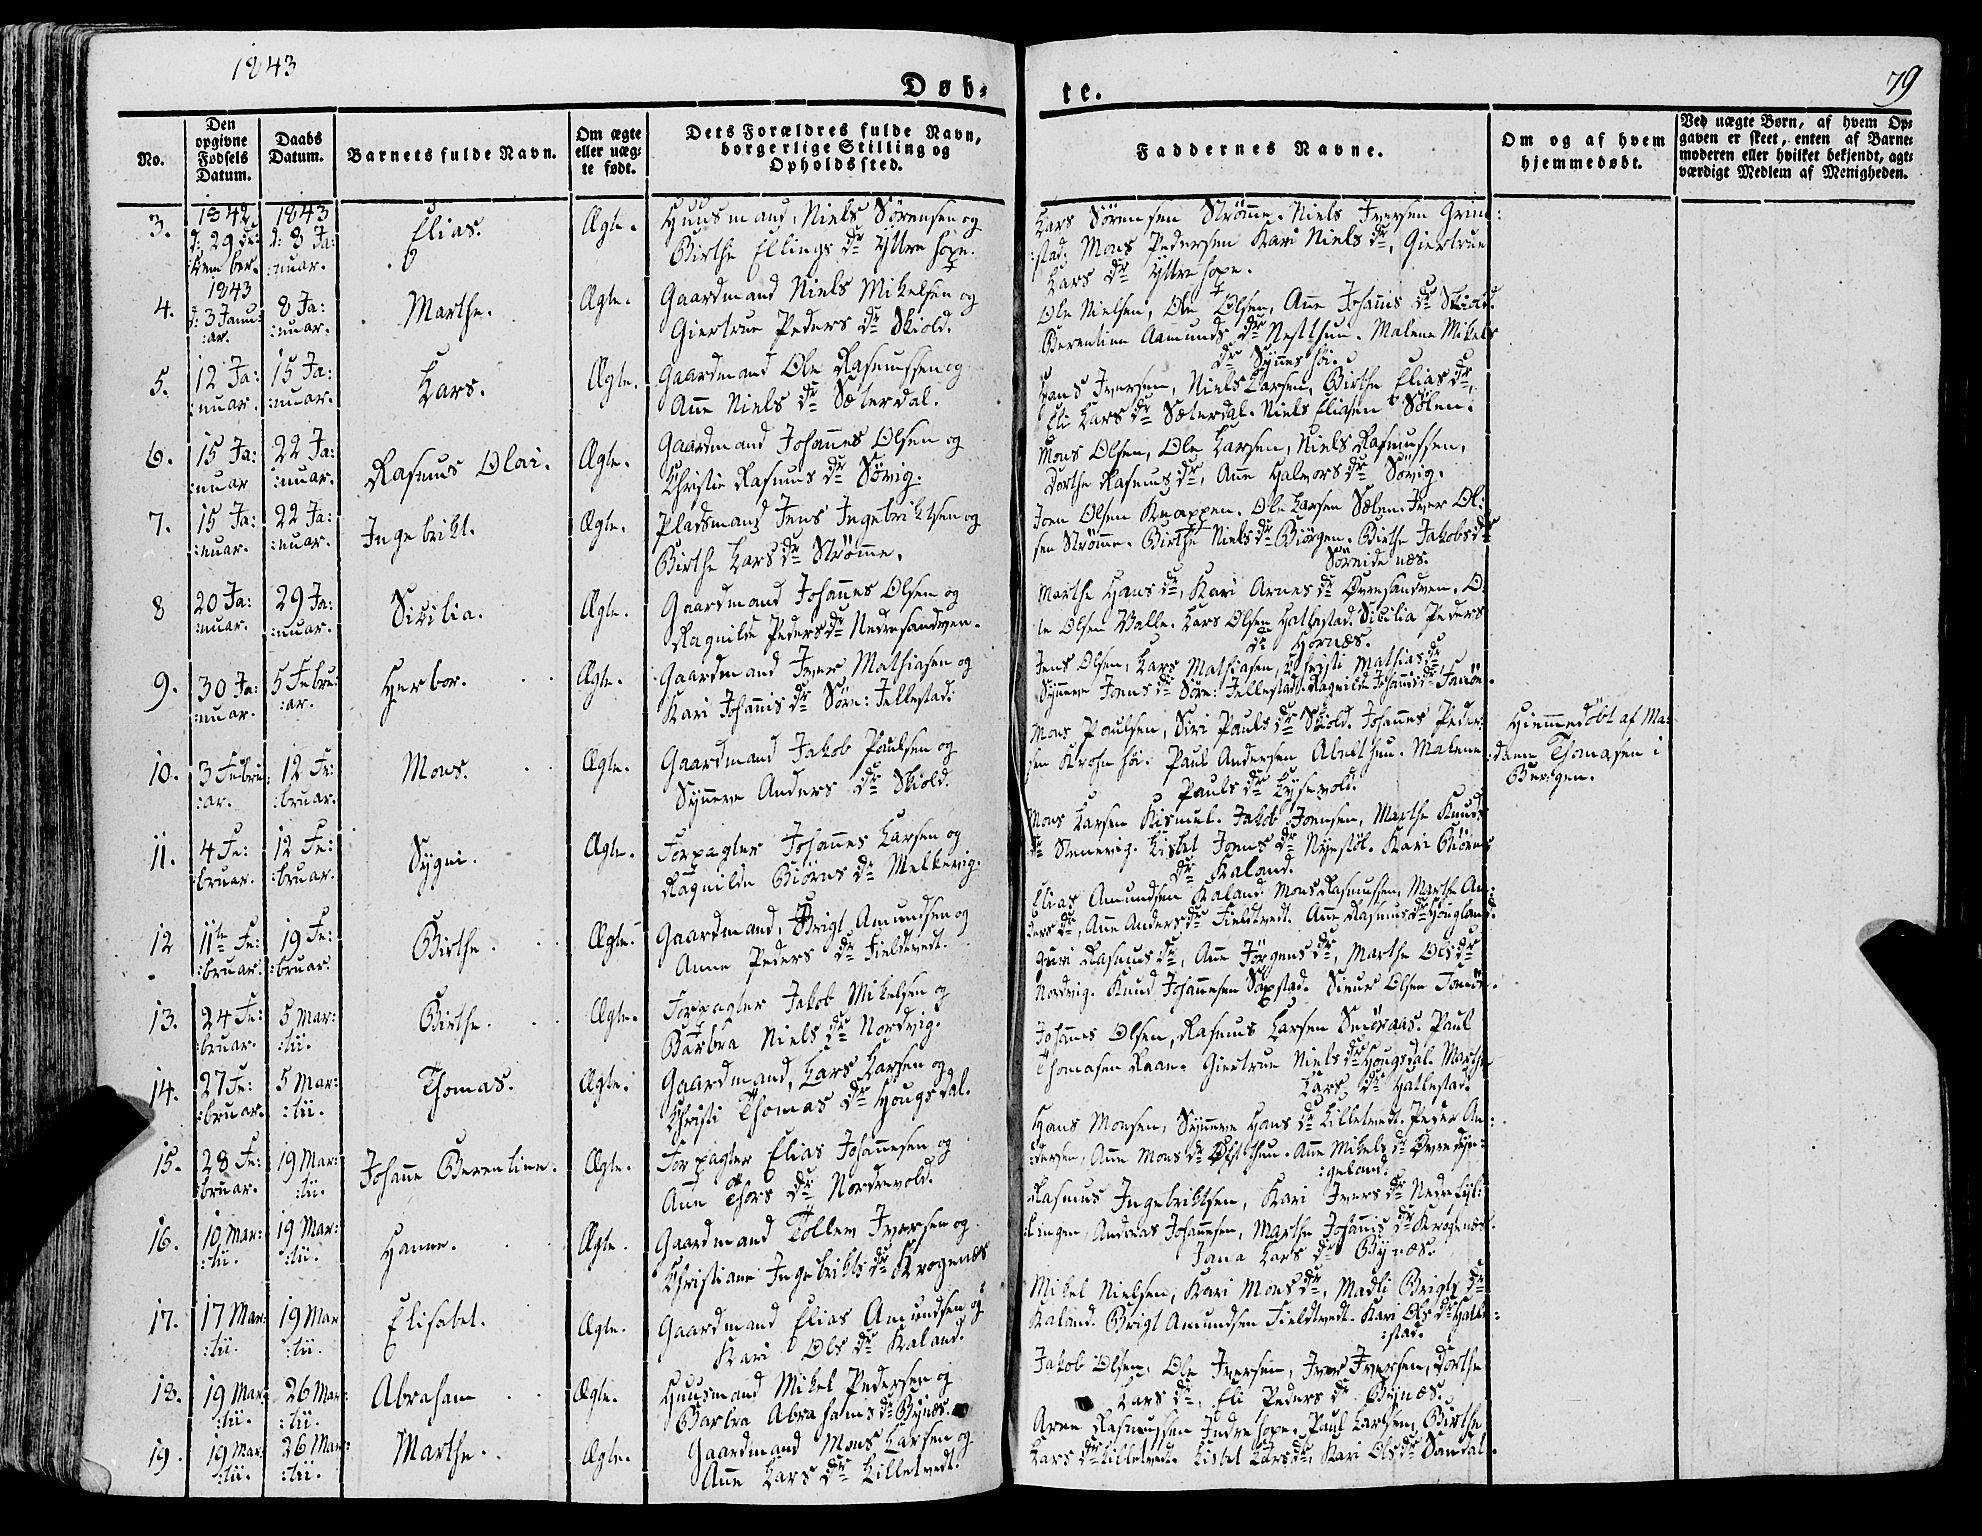 1843
Døb-
te.
79
No.
Den opgivne Fødsels Datum.
Daabs Datum.
Barnets fulde Navn.
Om ægte eller uægte født.
Dets Forældres fulde Navn, borgerlige Stilling og Opholdssted.
Faddernes Navne.
Om og af hvem hjemmedøbt.
Ved uægte Børn, af hvem Opgaven er skeet, enten af Barnemoderen eller hvilket bekjendt, agtværdigt Medlem af Menigheden.
3. 1842 d: 29 De:cember. 1843 d: 8 Ja:nuar. Elias. Ægte. Huusmand, Niels Sörensen og
Birthe Ellings dr Yttrehope.
Lars Sörensen Strömme. Niels Iversen Grim:
:stad, Mons Pedersen Kari Niels dr, Giertrue
Lars dr Yttrehope.
4. 1843 d: 3 Janu:ar. 8 Ja:nuar. Marthe. Ægte. Gaardmand Niels Mikelsen og
Giertrue Peders dr Skiold.
Ole Nielsen, Ole Olsen, Ane Johanis dr Skiold.
Berentine Aamunds dr Nestthun. Malene Mikels
dr Synneshöi.
5. 12 Ja:nuar. 15 Ja:nuar. Lars. Ægte. Gaardmand Ole Rasmussen og
Ane Niels dr Sæterdal.
Hans Iversen, Niels Larsen, Birthe Elias dr,
Eli Lars dr Sæterdal. Niels Eliasen Sölen.
6. 15 Ja:nuar 22 Ja:nuar. Rasmus Olai. Ægte. Gaardmand Johannes Olsen og
Christie Rasmus dr Sörvig.
Mons Olsen, Ole Larsen, Niels Rasmussen,
Dorthe Rasmus dr, Ane Halvors dr Sörvig.
7. 15 Ja:nuar. 22 Ja:nuar. Ingebrikt. Ægte. Pladsmand Jens Ingebriktsen og
Birthe Lars dr Strömme.
Joen Olsen Knappen. Ole Larsen Sælen. Iver Ol:
sen Strömme. Birthe Niels dr Biörgen. Birthe Jakobs dr
Söreidenæs.
8 20 Ja:nuar. 29 Ja:nuar. Sicilia. Ægte. Gaardmand Johannes Olsen og
Ragnilde Peders dr Nedresandven.
Marthe Hans dr, Kari Arnes dr Övresandven. O:
le Olsen Valle. Lars Olsen Hatlestad. Sibilia Peders
dr Hornæs.
9. 30 Ja:nuar. 5 Febru:ar. Herbor. Ægte. Gaardmand Iver Mathiasen og
Kari Johanis dr Sörn: Jellestad.
Jens Olsen, Lars Mathiasen, Christi Mathias dr
Synneve Joens dr Sörn: Jellestad. Ragnilde Johanis dr
10. 3 Febru:ar. 12 Fe:bruar. Mons. Ægte. Gaardmand Jakob Paulsen og
Synneve Anders dr Skiold.
Mons Paulsen, Siri Pauls dr Skiold. Johannes Peder:
sen Krohnhöi. Paul Andersen Abelthun. Malene
Pauls dr Lysevold.
Hiemmedöbt af Ma:
:dame Thomasen i
Bergen.
11. 4 Fe:bruar. 12 Fe:bruar. Sygni. Ægte. Forpagter Johannes Larsen og
Ragnilde Biörns dr Melkevig.
Mons Larsen Kismul. Jakob Joensen, Marthe Knuds
dr Stenevig. Lisbet Joens dr Nyestöl. Kari Biörns
dr Kaland.
12 11te Fe:bruar. 19 Fe:bruar. Birthe. Ægte. Gaardmand, Brigt Amundsen og
Anne Peders dr Fieldtvedt.
Elias Amundsen Kaland. Mons Rasmussen, Marthe An:
ders dr, Ane Anders dr Fieldtvedt. Ane Rasmus dr Hougland.
13. 24 Fe:bruar. 5 Mar:tii. Birthe. Ægte. Forpagter Jakob Mikelsen og
Barbra Niels dr Nordvig.
Guri Rasmus dr, Ane Jörgens dr, Marthe Ols dr
Nordvig. Knud Johannesen Sæpstad. Siur Olsen
14. 27 Fe:bruar. 5 Mar:tii. Thomas. Ægte. Gaardmand, Lars Larsen og
Christi Thomas dr Hougsdal.
Johannes Olsen, Rasmus Larsen Smöraas. Paul
Thomasen Raae. Giertrue Niels dr Hougsdal. Marthe
Lars dr Hatlestad.
15. 28 Fe:bruar. 19 Mar:tii. Johanne Berentine. Ægte. Forpagter Elias Johannesen og
Ane Thors dr Nordrevold.
Hans Monsen, Synneve Hans dr Lilletvedt. Peder An:
:dersen, Ane Mons dr Ane Mikels dr
:geland.
16. 10 Mar:tii. 19 Mar:tii. Hanne. Ægte. Gaardmand Tollev Iversen og
Christiane Ingebrikts dr Krogenæs
Rasmus Ingebriktsen, Kari Ivers dr Nedre Tyl:
:lingen, Andreas Johannesen, Marthe Johanis dr Krogenæs.
Jana Lars dr Bynæs.
17. 17 Mar:tii. 19 Mar:tii. Elisabet. Ægte. Gaardmand Elias Amundsen og
Kari Ols dr Kaland.
Mikel Nielsen, Kari Mons dr, Madli Brigts dr
Kaland. Brigt Amundsen Fieldtvedt. Kari Ols dr Hatle:
:stad.
18. 19 Mar:tii. 26 Mar:tii. Abraham Ægte. Huusmand Mikel Pedersen og
Barbra Abrahams dr Bynæs.
Jakob Olsen, Ole Iversen, Iver Iversen, Dorthe
Lars dr, Eli Peders dr Bynæs.
19. 19 Mar:tii. 26 Mar:tii. Marthe. Ægte. Gaardmand Mons Larsen og
Ane Lars dr Lilletvedt.
Arne Rasmussen Indrehope. Paul Larsen, Birthe
Lars dr Lilletvedt. Lisbet Lars dr, Kari Ols dr Sandal.